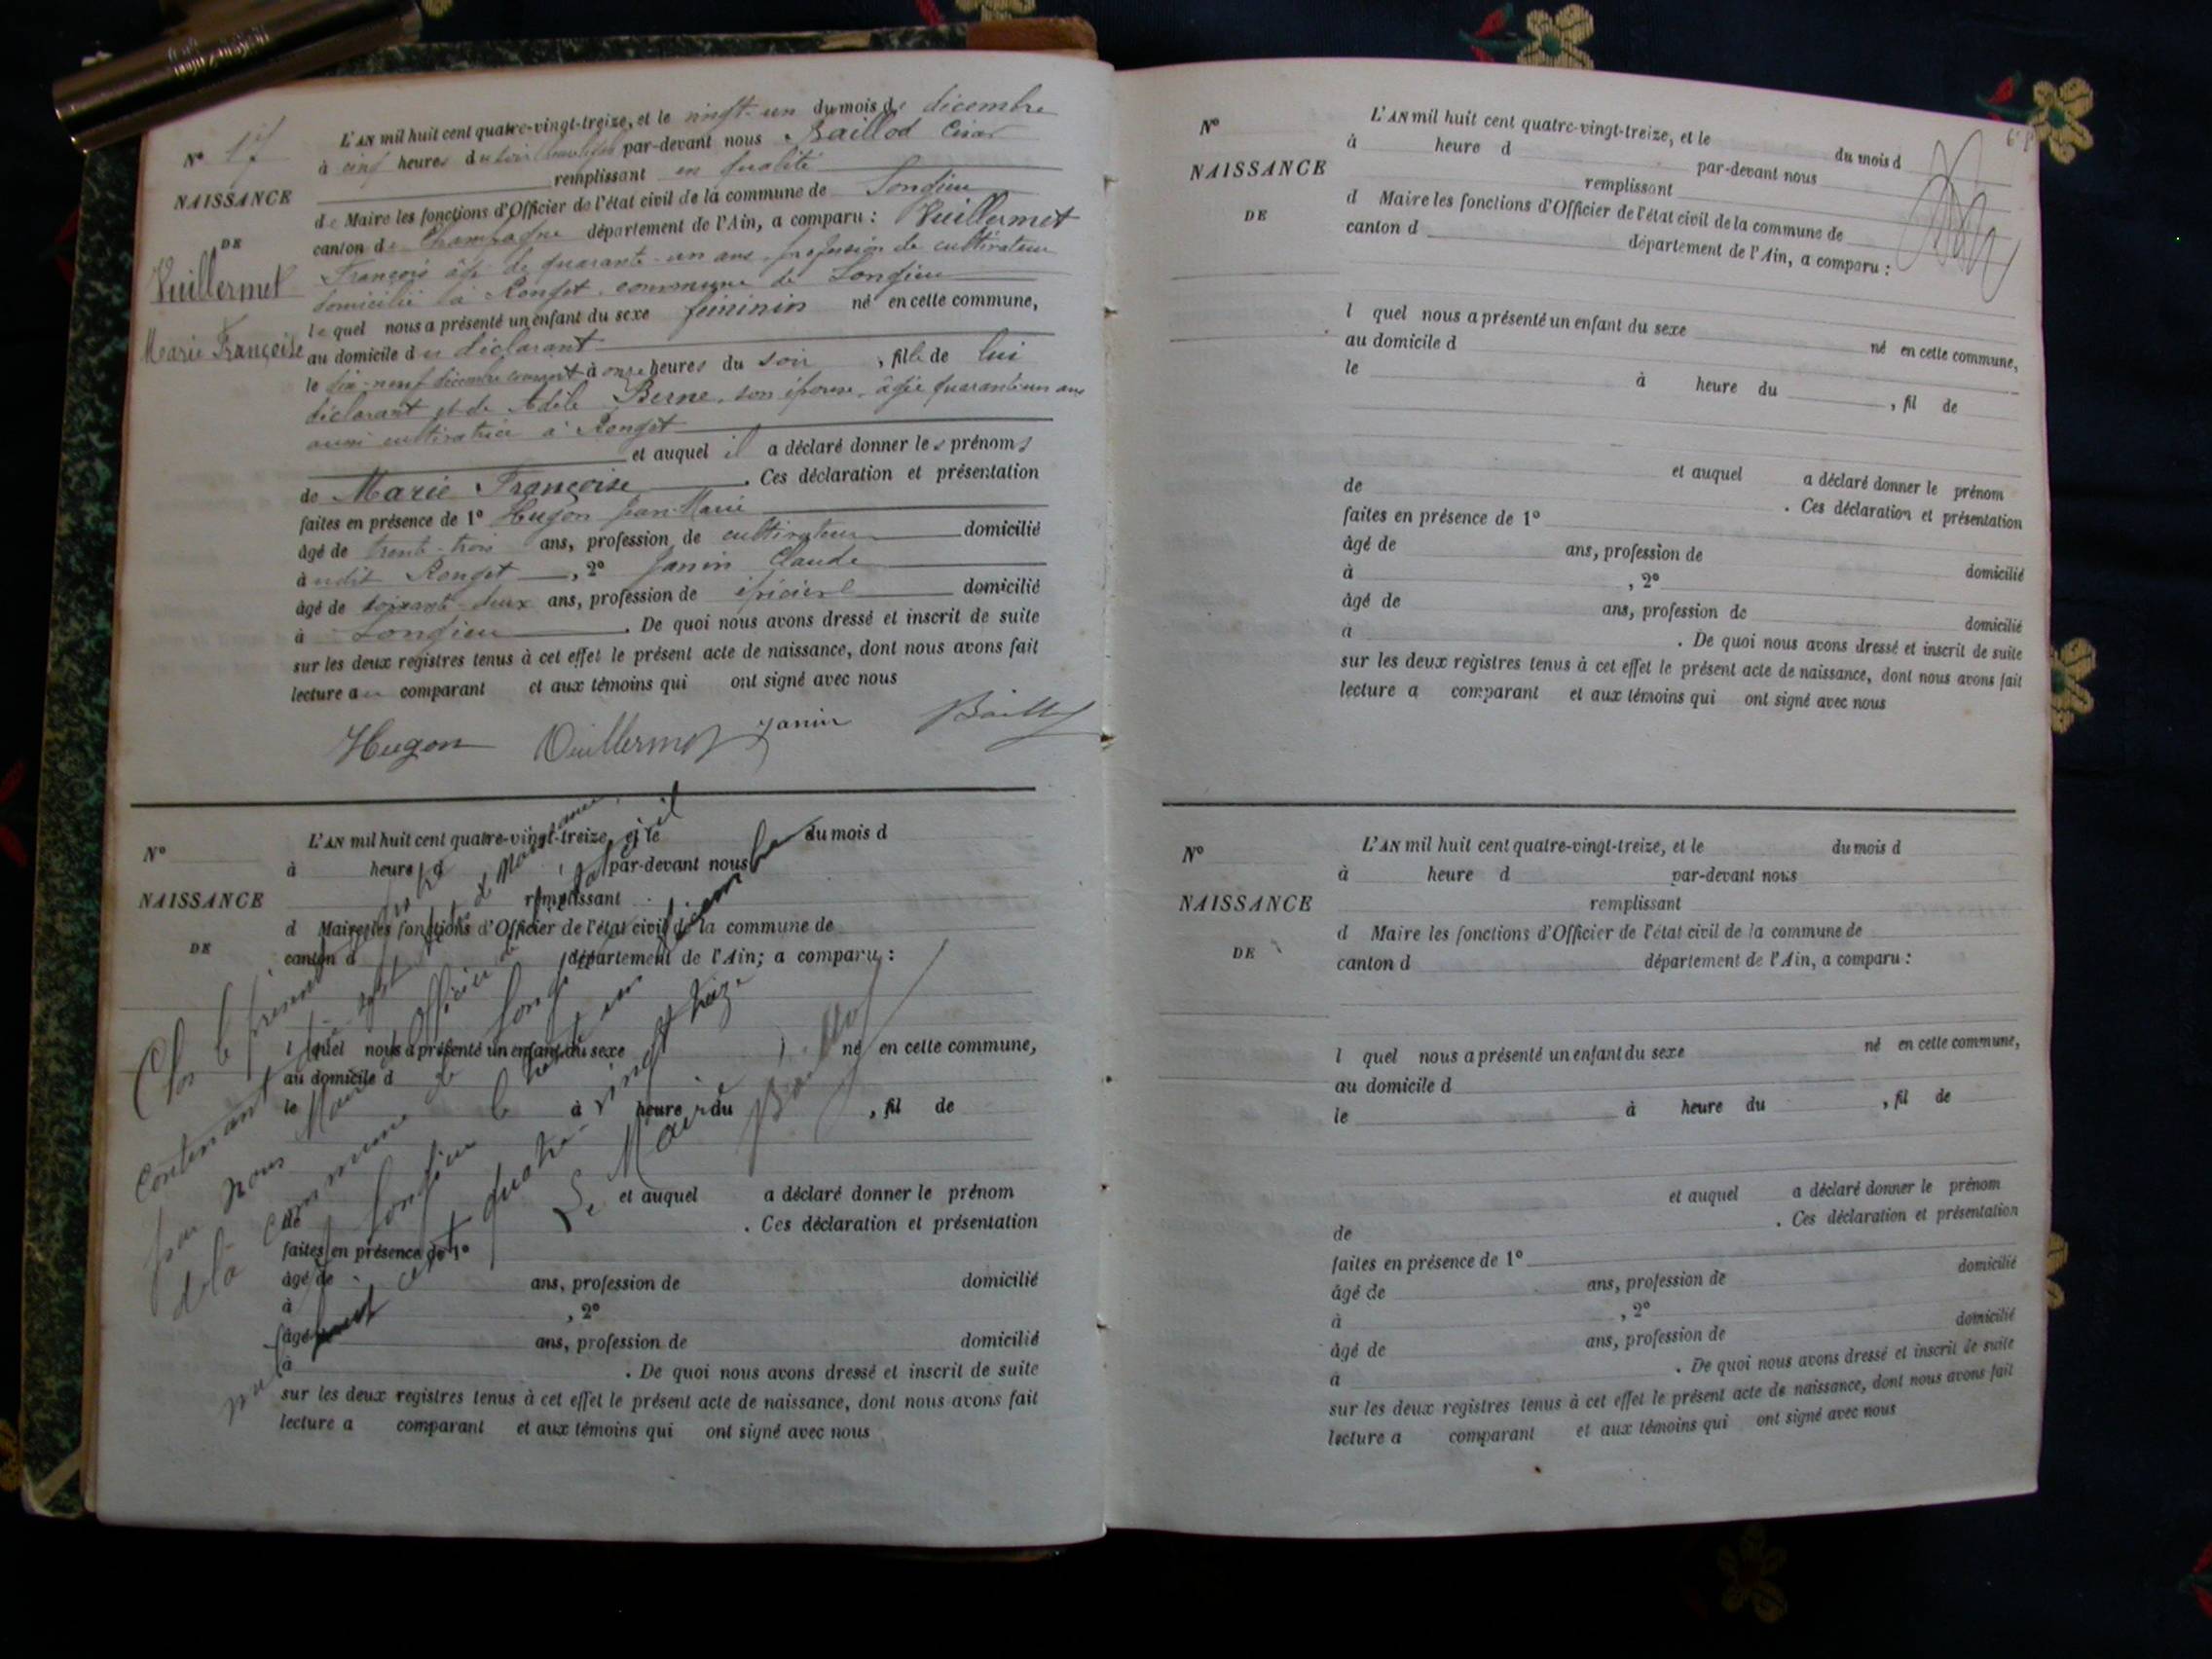 N° 17
NAISSANCE
DE
Vuillermet
Marie Françoise
L'AN mil huit cent quatre-vingt-treize, et le vingt-un du mois de décembre
à cinq heures du soir par-devant nous Baillod César
remplissant en qualité
de Maire les fonctions d'Officier de l'état civil de la commune de Songieu
canton de Champagne département de l'Ain, a comparu : Vuillermet
François âgé de quarante-un ans, profession de cultivateur
domicilié à Ronget, commune de Songieu
lequel nous a présenté un enfant du sexe féminin né en cette commune,
au domicile du déclarant
le dix-neuf décembre courant à onze heures du soir , fille de lui
déclarant et de Adèle Berne, son épouse, âgée quarante un ans
aussi cultivatrice à Ronget
et auquel il a déclaré donner les prénoms
de Marie Françoise . Ces déclaration et présentation
faites en présence de 1° Hugon Jean Marie
âgé de trente-trois ans, profession de cultivateur domicilié
à udit Ronget , 2° Janin Claude
âgé de soixante-deux ans, profession de épicier domicilié
à Songieu . De quoi nous avons dressé et inscrit de suite
sur les deux registres tenus à cet effet le présent acte de naissance, dont nous avons fait
lecture au comparant et aux témoins qui ont signé avec nous
Hugon Vuillermet Janin Baillod
N°
NAISSANCE
DE
L'AN mil huit cent quatre-vingt-treize, et le du mois d
à heure d par-devant nous
remplissant
d Maire les fonctions d'Officier de l'état civil de la commune de
canton d département de l'Ain; a comparu :
l quel nous a présenté un enfant du sexe né en cette commune,
au domicile d
le à heure du , fil de
et auquel a déclaré donner le prénom
de . Ces déclaration et présentation
faites en présence de 1°
âgé de ans, profession de domicilié
à , 2°
âgé ans, profession de domicilié
à . De quoi nous avons dressé et inscrit de suite
sur les deux registres tenus à cet effet le présent acte de naissance, dont nous avons fait
lecture a comparant et aux témoins qui ont signé avec nous
Clos le présent
contenant dix sept de naissance
par nous Maire Officier de l'état civil
de la commune de Songieu
Songieu le trente un
mil huit cent quatre-vingt treize
Le Maire
Baillod
N°
NAISSANCE
DE
L'AN mil huit cent quatre-vingt-treize, et le du mois d
à heure d par-devant nous
remplissant
d Maire les fonctions d'Officier de l'état civil de la commune de
canton d département de l'Ain, a comparu :
l quel nous a présenté un enfant du sexe
au domicile d né en cette commune,
le à heure du , fil de
et auquel a déclaré donner le prénom
de . Ces déclaration et présentation
faites en présence de 1°
âgé de ans, profession de domicilié
à , 2°
âgé de ans, profession de domicilié
à . De quoi nous avons dressé et inscrit de suite
sur les deux registres tenus à cet effet le présent acte de naissance, dont nous avons fait
lecture a comparant et aux témoins qui ont signé avec nous
N°
NAISSANCE
DE
L'AN mil huit cent quatre-vingt-treize, et le du mois d
à heure d par-devant nous
remplissant
d Maire les fonctions d'Officier de l'état civil de la commune de
canton d département de l'Ain, a comparu :
l quel nous a présenté un enfant du sexe né en cette commune,
au domicile d
le à heure du , fil de
et auquel a déclaré donner le prénom
de . Ces déclaration et présentation
faites en présence de 1°
âgé de ans, profession de domicilié
à , 2°
âgé de ans, profession de domicilié
à . De quoi nous avons dressé et inscrit de suite
sur les deux registres tenus à cet effet le présent acte de naissance, dont nous avons fait
lecture a comparant et aux témoins qui ont signé avec nous